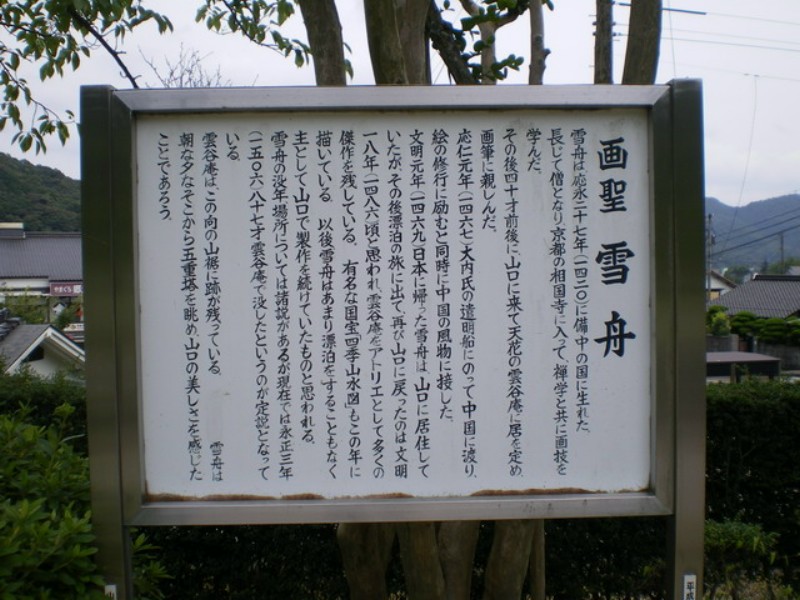 画聖 雪舟
雪舟は応永二十七年(一四二〇)に備中の国に生れた、
長じて僧となり、京都の相国寺に入って、禅学と共に画技を
学んだ。
その後四十才前後に山口に来て天花の雲谷庵に居を定め、
画筆に親しんだ。
応仁元年(一四六七)大内氏の遣明船にのって中国に渡り、
絵の修行に励むと同時に中国の風物に接した。
文明元年(一四六九)日本に帰った雪舟は、山口に居住して
いたが、その後漂泊の旅に出て、再び山口に戻ったのは文明
一八年(一四八六)頃と思われ、雲谷庵をアトリエとして多くの
傑作を残している。有名な国宝「四季山水図」もこの年に
描いている。以後雪舟はあまり漂泊をすることもなく
主として山口で製作を続けていたものと思われる。
雪舟の没年、場所については諸説があるが現在では永正三年
(一五〇六)八十七才雲谷庵で没したというのが定説となって
いる。
雲谷庵は、この向の山裾に跡が残っている。 雪舟は
朝な夕なそこから五重塔を眺め、山口の美しさを感じた
ことであろう。
平成